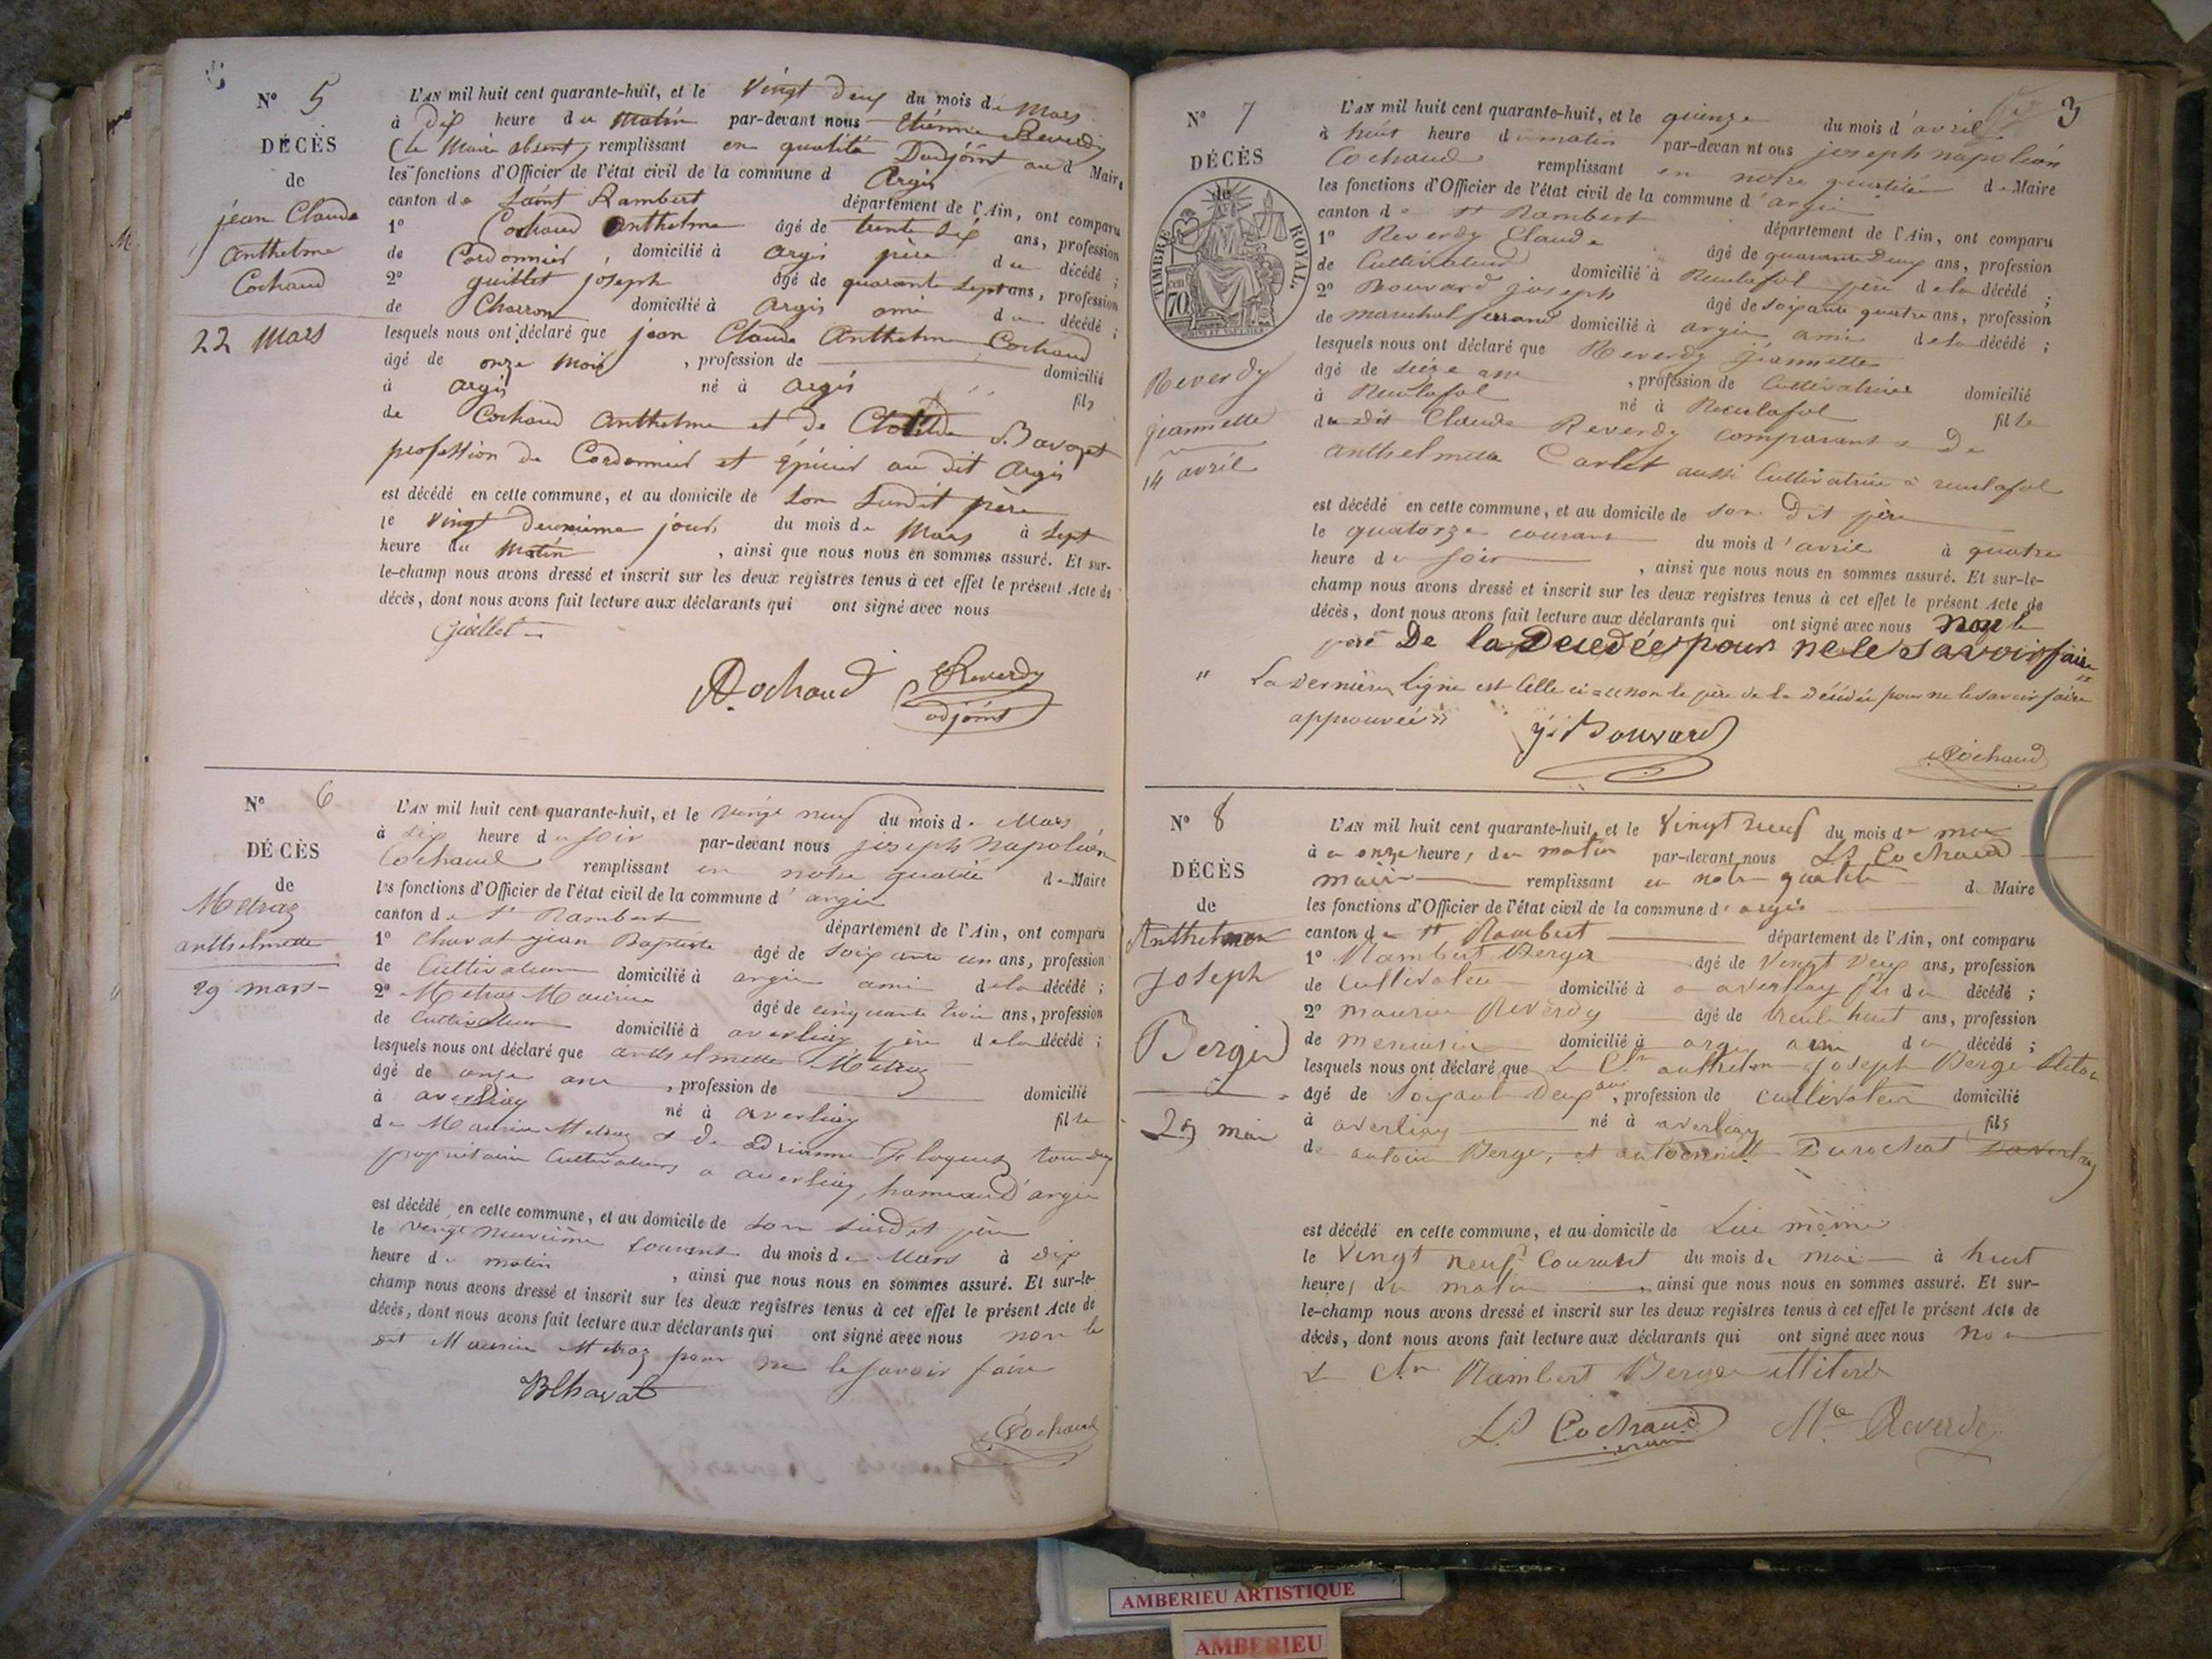 N° 5
DÉCÈS
de
jean Claude
Anthelme
Cochaud
22 Mars
L'AN mil huit cent quarante-huit, et le Vingt Deux du mois de Mars
à Dix heure du Matin par-devant nous Etienne Reverdy
(le Maire absent) remplissant en qualité D'adjoint au d Maire
les fonctions d'Officier de l'état civil de la commune d Argis
canton de Saint Rambert département de l'Ain, ont comparu
1° Cochaud Anthelme âgé de trente six ans, profession
de Cordonnier, domicilié à Argis père du décédé ;
2° guillet joseph âgé de quarante sept ans, profession
de Charron domicilié à Argis ami du décédé ;
lesquels nous ont déclaré que jean Claude Anthelme Cochaud
âgé de onze mois, profession de domicilié
à Argis né à Argis fils
de Cochaud Anthelme et de Clotilde Savoyet
profession de Cordonnier et épicier au dit Argis
est décédé en cette commune, et au domicile de Son Susdit père
le Vingt Deuxième jour du mois de Mars à Sept
heure du Matin, ainsi que nous nous en sommes assuré. Et sur-
le-champ nous avons dressé et inscrit sur les deux registres tenus à cet effet le présent Acte de
décès, dont nous avons fait lecture aux déclarants qui ont signé avec nous
Guillet
A Cochaud E Reverdy
adjoint
N° 6
DÉCÈS
de
Metraz
anthelmette
29 mars
L'AN mil huit cent quarante-huit, et le vingt neuf du mois de Mars
à six heure du soir par-devant nous joseph Napoléon
Cochaud remplissant en notre qualité de Maire
les fonctions d'Officier de l'état civil de la commune d'argis
canton de St Rambert département de l'Ain, ont comparu
1° Chavat jean Baptiste âgé de soixante un ans, profession
de Cultivateur domicilié à argis ami de la décédé ;
2° Metraz Maurice âgé de cinquante trois ans, profession
de Cultivateur domicilié à averliaz père de la décédé ;
lesquels nous ont déclaré que anthelmette Metraz
âgé de onze ans, profession de domicilié
à averliaz né à averliaz fille
de Maurice Metraz & de Adrianne tous deux
propriétaires Cultivateurs a averliaz, hameau d'argis
est décédé en cette commune, et au domicile de son susdit père
le vingt neuvième courant du mois de Mars à dix
heure du matin, ainsi que nous nous en sommes assuré. Et sur-le-
champ nous avons dressé et inscrit sur les deux registres tenus à cet effet le présent Acte de
décès, dont nous avons fait lecture aux déclarants qui ont signé avec nous non le
dit Maurice Metraz pour ne le savoir faire
JB Chavat
Cochaud
3
N° 7
DÉCÈS
de
TIMBRE ROYAL
70
Reverdy
jeannette
14 avril
L'AN mil huit cent quarante-huit, et le quinze du mois d'avril
à huit heure du matin par-devan nt ous joseph napoléon
Cochaud remplissant en notre qualité de Maire
les fonctions d'Officier de l'état civil de la commune d'argis
canton de St Rambert département de l'Ain, ont comparu
1° Reverdy Claude âgé de quarante Deux ans, profession
de Cultivateur domicilié à Reculafol père de la décédé ;
2° Bouvard joseph âgé de soixante quatre ans, profession
de marechal ferrand domicilié à argis ami de la décédé ;
lesquels nous ont déclaré que Reverdy jeannette
âgé de seize ans, profession de Cultivatrice domicilié
à Reculafol né à Reculafol fille
du dit Claude Reverdy comparant & De
anthelmette Carlet aussi Cultivatrice à reculafol
est décédé en cette commune, et au domicile de son Dit père
le quatorze courant du mois d'avril à quatre
heure du soir, ainsi que nous nous en sommes assuré. Et sur-le-
champ nous avons dressé et inscrit sur les deux registres tenus à cet effet le présent Acte de
décès, dont nous avons fait lecture aux déclarants qui ont signé avec nous non le
pere De la Decedée pour ne le savoir faire
" La dernière ligne est Celle ci = non le père de la décédée pour ne le savoir faire
approuvée »
j. Bouvard
Cochaud
N° 8
DÉCÈS
de
Anthelme
Joseph
Berger
29 mai
L'AN mil huit cent quarante-huit, et le Vingt neuf du mois de mai
à onze heure, du matin par-devant nous Cochaud
maire remplissant en notre qualité de Maire
les fonctions d'Officier de l'état civil de la commune d'argis
canton de St Rambert département de l'Ain, ont comparu
1° Rambert Berger âgé de Vingt Deux ans, profession
de Cultivateur domicilié à averliaz fils du décédé ;
2° maurice Reverdy âgé de trente huit ans, profession
de menuisier domicilié à argis ami du décédé ;
lesquels nous ont déclaré que Le Cen anthelme joseph Berger
âgé de Soixante Deux ans, profession de cultivateur domicilié
à averliaz né à averliaz fils
de antoine Berger, et antoinette Durochat
est décédé en cette commune, et au domicile de Lui même
le Vingt neuf Courant du mois de mai à huit
heure, du matin, ainsi que nous nous en sommes assuré. Et sur-
le-champ nous avons dressé et inscrit sur les deux registres tenus à cet effet le présent Acte de
décès, dont nous avons fait lecture aux déclarants qui ont signé avec nous non
Le Cen Rambert Berger illiteré
Cochaud Mce Reverdy
AMBERIEU ARTISTIQUE
AMBERIEU